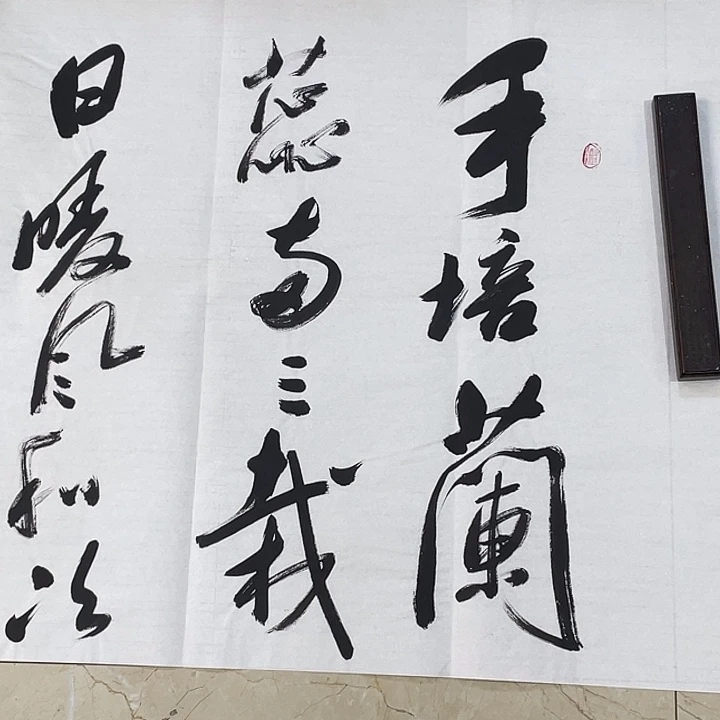 手培蘭
蕊兩三栽
日暖風和次